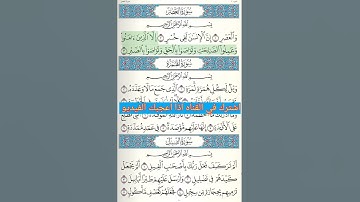 سُورَةُ العَصْرِ
بِسْمِ اللَّهِ الرَّحْمَٰنِ الرَّحِيمِ
وَالْعَصْرِ ١ إِنَّ الْإِنسَٰنَ لَفِي خُسْرٍ ٢ إِلَّا الَّذِينَ ءَامَنُوا
وَعَمِلُوا الصَّٰلِحَٰتِ وَتَوَاصَوْا بِالْحَقِّ وَتَوَاصَوْا بِالصَّبْرِ ٣
سُورَةُ الهُمَزَةِ
بِسْمِ اللَّهِ الرَّحْمَٰنِ الرَّحِيمِ
وَيْلٌ لِّكُلِّ هُمَزَةٍ لُّمَزَةٍ ١ الَّذِي جَمَعَ مَالًا وَعَدَّدَهُ ٢
اشترك في القناه اذا اعجبك الفيديو
عَلَى الْأَفْـِٔدَةِ ٧ إِنَّهَا عَلَيْهِم مُّؤْصَدَةٌ ٨ فِي عَمَدٍ مُّمَدَّدَةٍ ٩
سُورَةُ الفِيلِ
بِسْمِ اللَّهِ الرَّحْمَٰنِ الرَّحِيمِ
أَلَمْ تَرَ كَيْفَ فَعَلَ رَبُّكَ بِأَصْحَٰبِ الْفِيلِ ١ أَلَمْ يَجْعَلْ
كَيْدَهُمْ فِي تَضْلِيلٍ ٢ وَأَرْسَلَ عَلَيْهِمْ طَيْرًا أَبَابِيلَ ٣
تَرْمِيهِم بِحِجَارَةٍ مِّن سِجِّيلٍ ٤ فَجَعَلَهُمْ كَعَصْفٍ مَّأْكُولٍ ٥